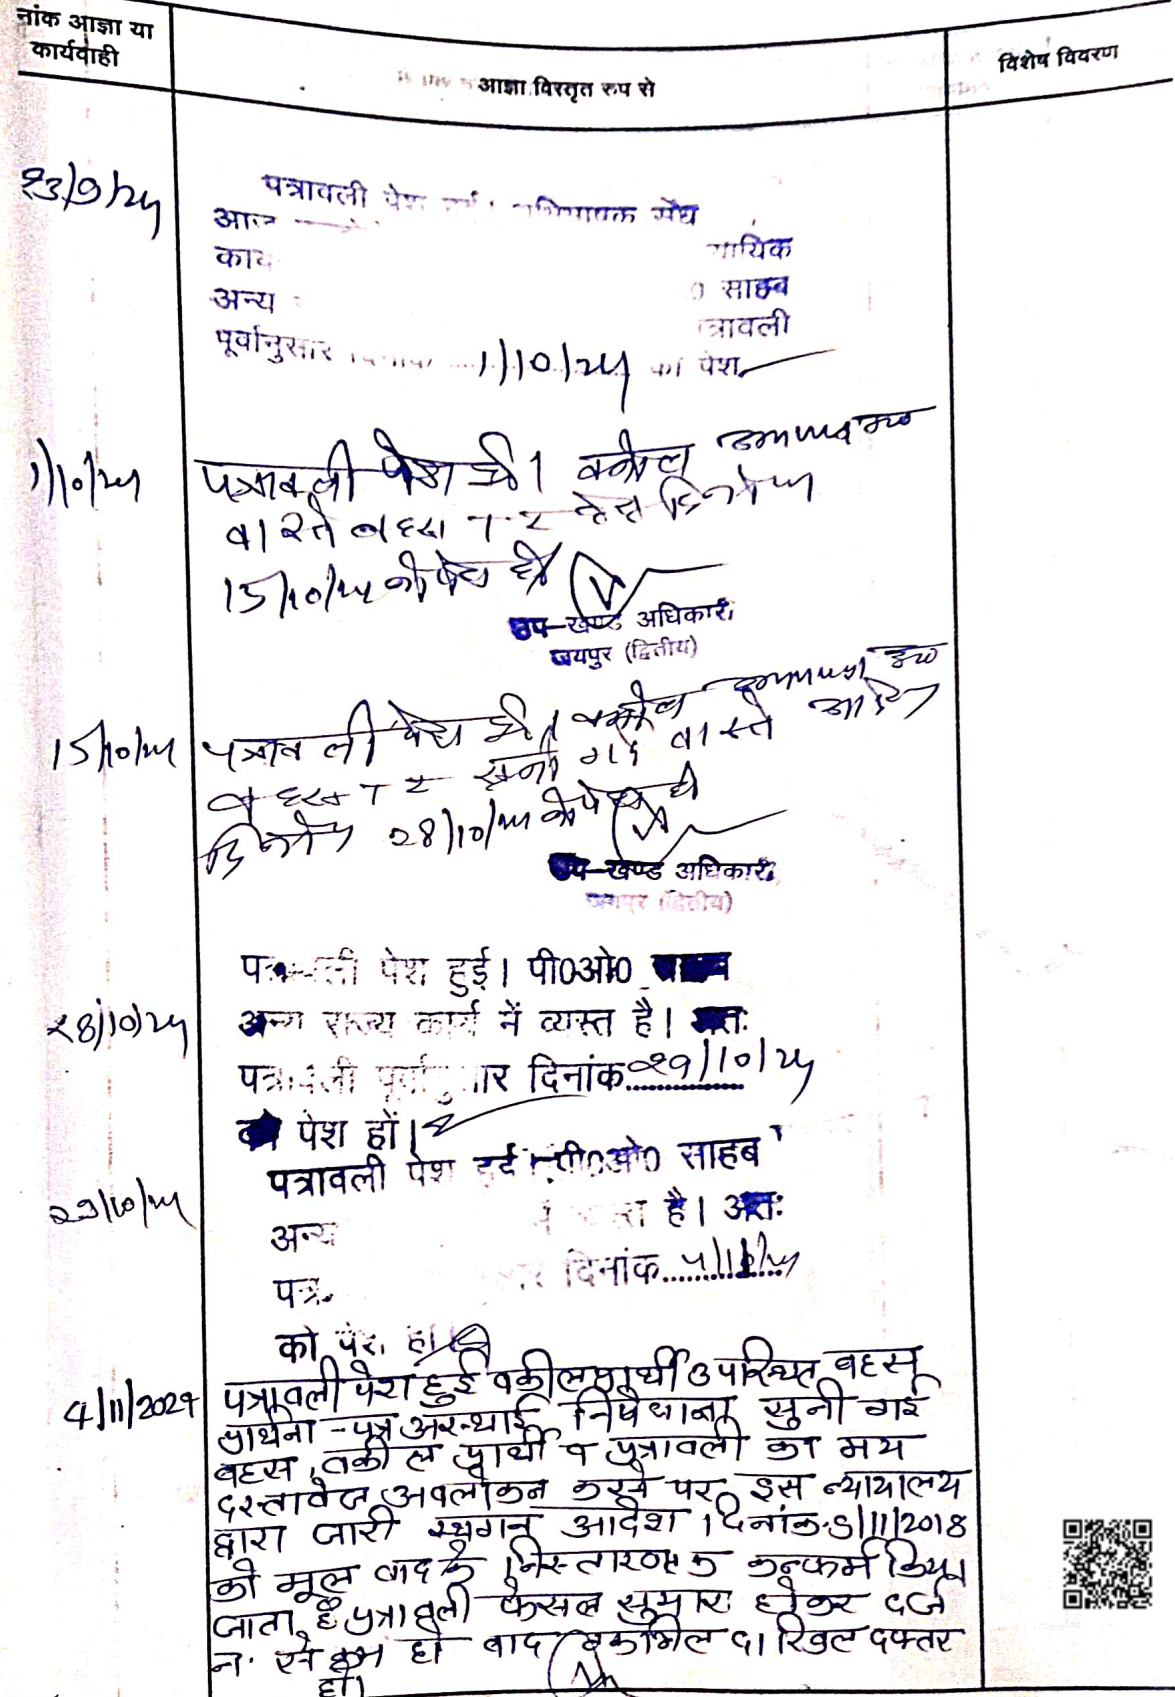 नांक आज्ञा या
कार्यवाही
आज्ञा विस्तृत रुप से
विशेष विवरण
23/9/24
पत्रावली पेश अभिभाषक संघ
आज
कार्य न्यायिक
अन्य साहब
पत्रावली
पूर्वानुसार दिनांक 1/10/24 को पेश
1/10/24
पत्रावली पेश हुई। वकील
वास्ते बहस T.I दिनांक
15/10/24 को पेश हो
उप-खण्ड अधिकारी
जयपुर (द्वितीय)
15/10/24
पत्रावली पेश हुई। वकील
बहस T I सुनी गई वास्ते आदेश
दिनांक 28/10/24 को पेश हो
उप-खण्ड अधिकारी
जयपुर (द्वितीय)
पत्रावली पेश हुई। पी0ओ0 साहब
28/10/24
अन्य राज्य कार्य में व्यस्त है। अतः
पत्रावली पूर्वानुसार दिनांक 29/10/24
को पेश हों।
पत्रावली पेश हुई। पी0ओ0 साहब
29/10/24
अन्य है। अतः
दिनांक 4/11/24
को पेश हो
4/11/2024
पत्रावली पेश हुई वकील प्रार्थी उपस्थित बहस
प्रार्थना-पत्र अस्थाई निषेधाज्ञा सुनी गई
बहस, वकील प्रार्थी व पत्रावली का मय
दस्तावेज अवलोकन करने पर इस न्यायालय
द्वारा जारी स्थगन आदेश दिनांक 5/11/2018
को मूल वाद के निस्तारण तक कन्फर्म किया
जाता है पत्रावली फैसल सुमार होकर दर्ज
न. से कम हो बाद तकमिल दाखिल दफ्तर
हो।